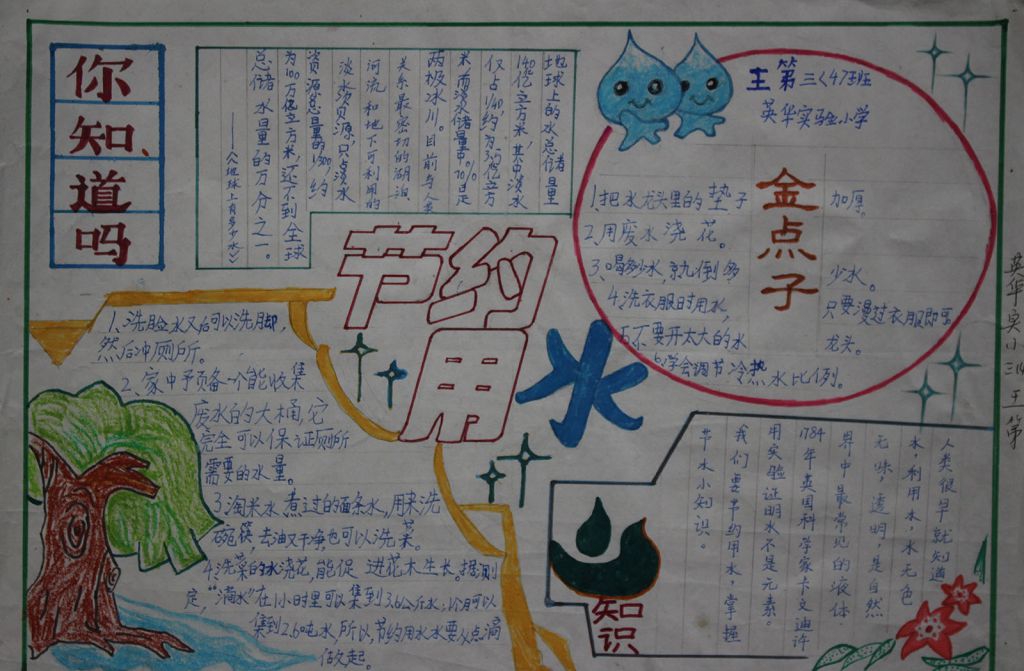 你知道吗
地球上的水总储量
140亿立方米,其中淡水
仅占1/40,约为3.5亿立方
米,而淡水储量中,70%是
两极冰川。目前与人类
关系最密切的湖泊、
河流和地下可利用的
淡水资源,只占淡水
资源总量的1/300,约
为100万亿立方米,还不到全球
总储水量的万分之一。
——《地球上有多少水》
王第 三<4>班
英华实验小学
金点子
1、把水龙头里的垫子加厚。
2、用废水浇花。
3、喝多少水,就倒多少水。
4、洗衣服时用水,只要漫过衣服即可
5、不要开太大的水龙头。
6、学会调节冷热水比例。
节约用水
1、洗脸水又后可以洗脚,
然后冲厕所。
2、家中予预备一个能收集
废水的大桶,它
完全可以保证厕所
需要的水量。
3、淘米水、煮过的面条水,用来洗
碗筷,去油又干净,也可以洗菜。
4、洗菜的水浇花,能促进花木生长。据测
定,“滴水”在1小时里可以集到3.6公斤水;1个月可以
集到2.6吨水,所以,节约用水水要从点滴
做起。
知识
人类很早就知道
水,利用水,水无色
无味,透明,是自然
界中最常见的液体
1784年英国科学家卡文迪许
用实验证明水不是元素。
我们要节约用水,掌握
节水小知识。
英华实小 三(4) 王第